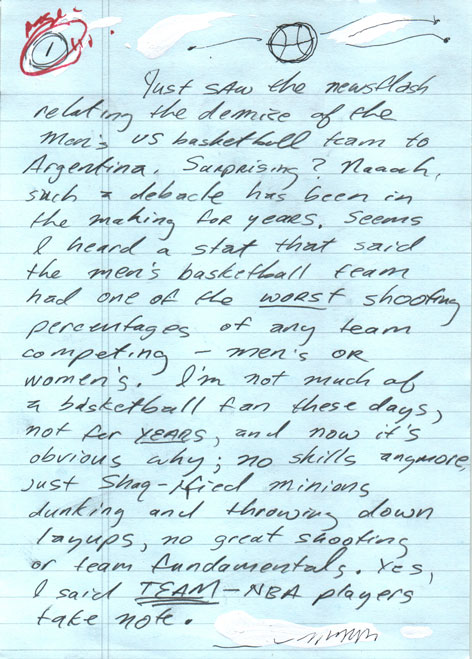 1
Just saw the newsflash
relating the demise of the
men's US basketball team to
Argentina. Surprising? Naaah,
such a debacle has been in
the making for years. Seems
I heard a stat that said
the men's basketball team
had one of the worst shooting
percentages of any team
competing – men's or
women's. I'm not much of
a basketball fan these days,
not for YEARS, and now it's
obvious why; no skills anymore,
just Shaq-ified minions
dunking and throwing down
layups, no great shooting
or team fundamentals. Yes,
I said TEAM – NBA players
take note.